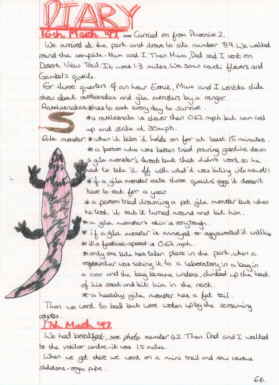 DIARY
16th March 97 ⇒ Carried on from Phoenix 2.
We arrived at the park and drove to site number 84. We walked
round the campsite. Mum and I then Mum, Dad and I went on
Desert View Trail. It was 1.3 miles. We saw cacti, flowers and
Gambel's quails.
For three quarters of an hour Ernie, Mum and I watched a slide
show about rattlesnakes and gila monsters by a ranger.
Rattlesnakes have to eat every day to survive.
a rattlesnake is slower than 0.62 mph but can coil
up and strike at 30mph.
Gila monster when it bites it holds on for at least 15 minutes.
a person who was bitten tried pouring gasoline down
a gila monster's throat but that didn't work so he
had to take it off with what it was biting
if a gila monster eats three quails eggs it doesn't
have to eat for a year.
a person tried drowning a pet gila monster but when
he took it out it turned around and bit him.
a gila monster's skin is rough
if a gila monster is annoyed or aggravated it will
it's fastest speed is 0.62 mph.
only one bite has taken place in the park when a
was taking it to a laboratory in a bag in
a car and the bag became undone, climbed up the back
of his seat and bit him in the neck.
a healthy gila monster has a fat tail.
Then we went to bed but were woken up by the screaming
17th March 97
We had breakfast, see photo number 62. Then Dad and I walked
to the visitor centre. It was 1.5 miles.
When we got there we went on a mini trail and saw various
cactuses - organ pipe.
66